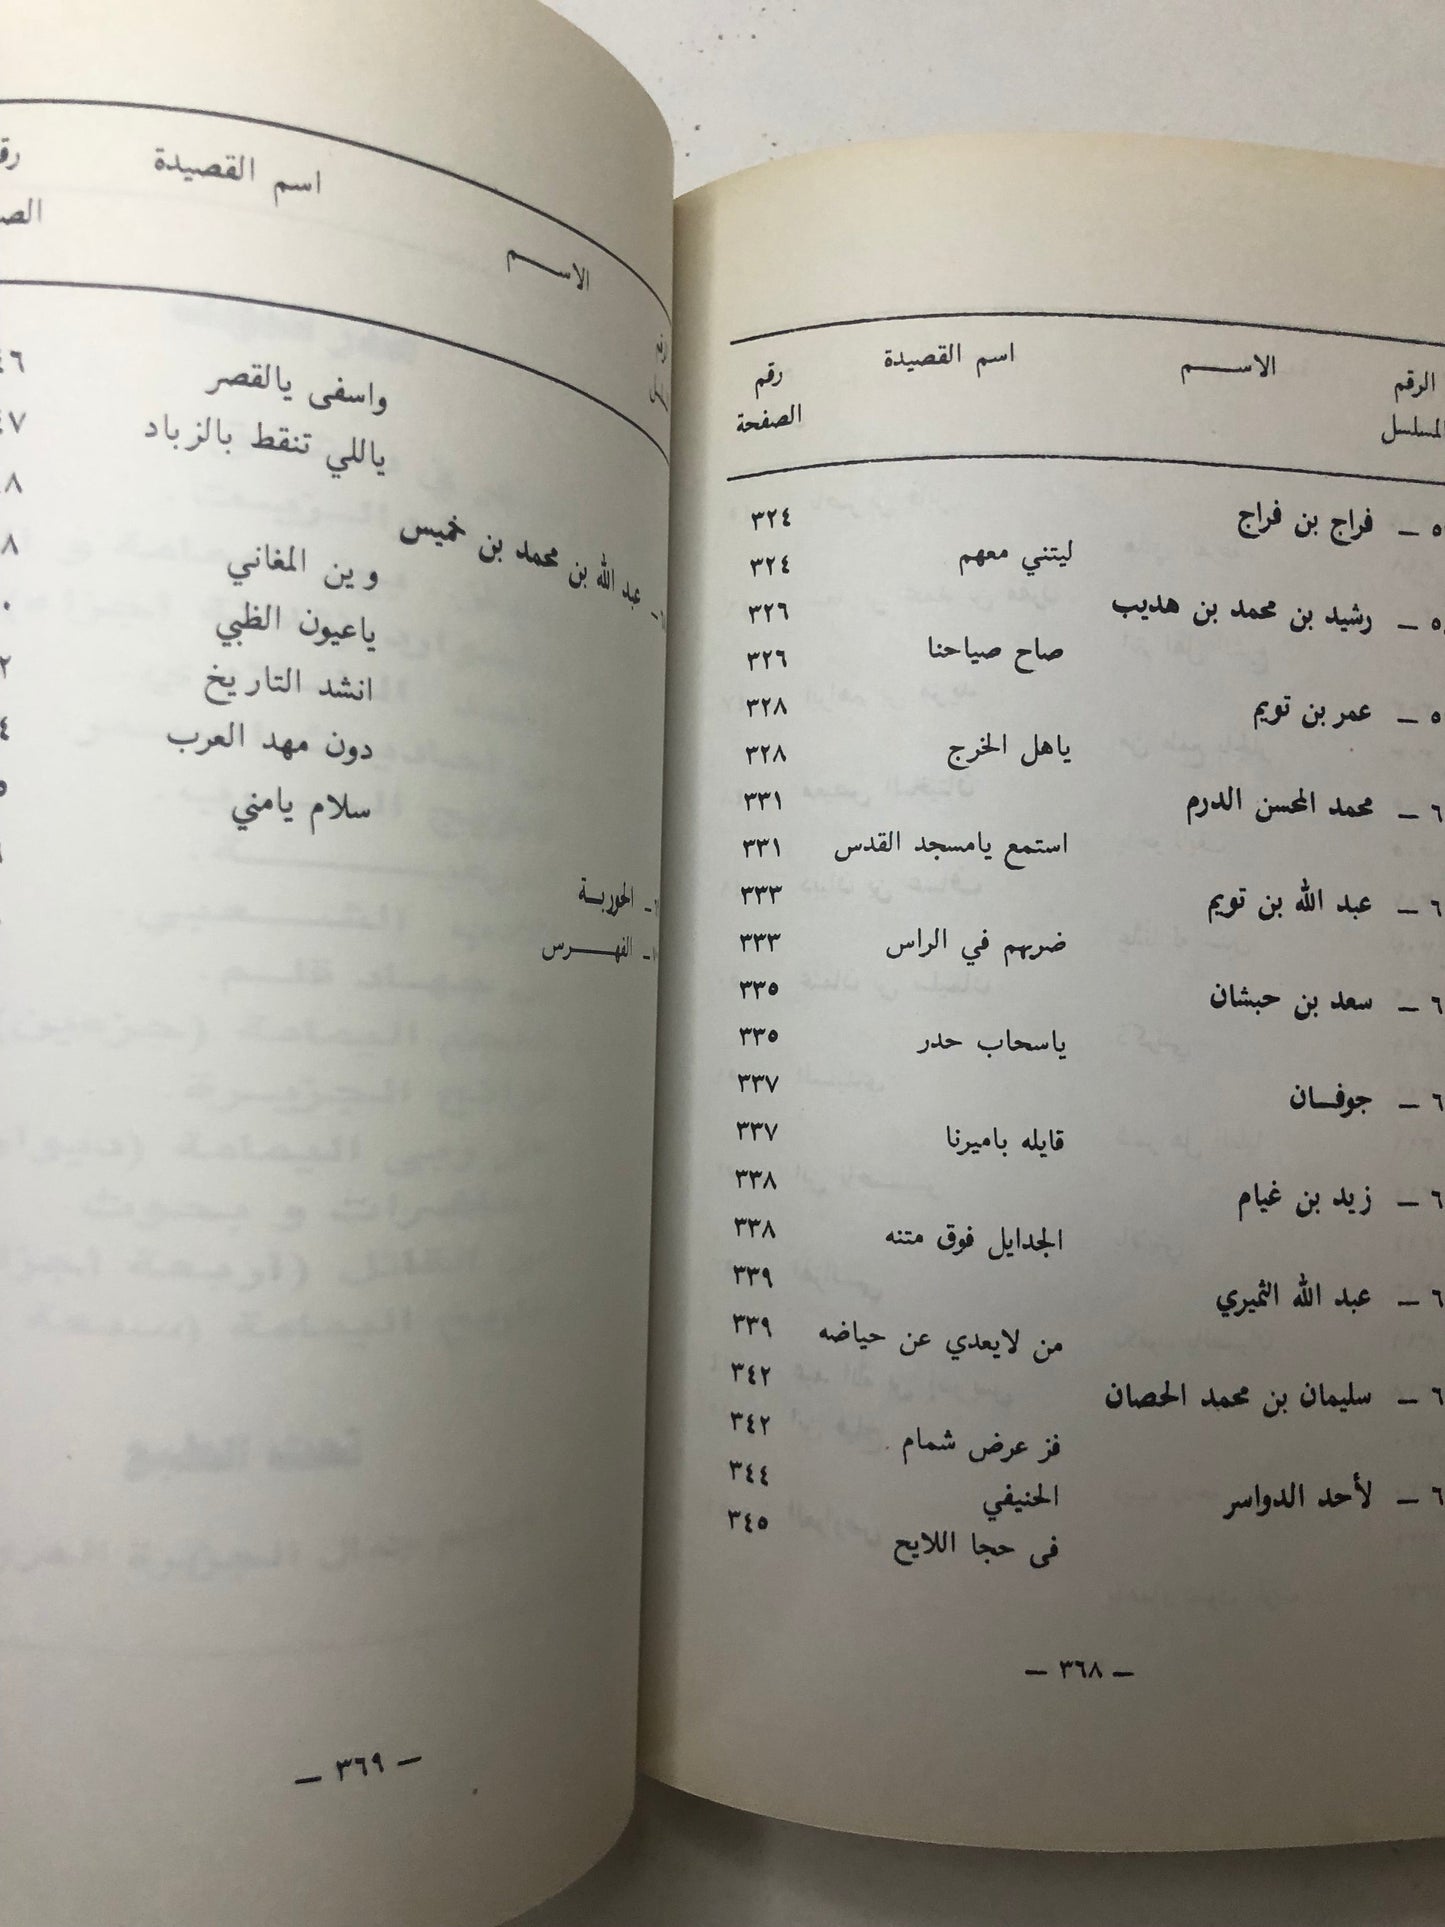 الرقم الاســـم اسم القصيدة رقم
المسلسل الصفحة
فراج بن فراج ٣٢٤
ليتني معهم ٣٢٤
رشيد بن محمد بن هديب ٣٢٦
صاح صياحنا ٣٢٦
عمر بن تويم ٣٢٨
ياهل الخرج ٣٢٨
محمد المحسن الدرم ٣٣١
استمع يامسجد القدس ٣٣١
عبد الله بن تويم ٣٣٣
ضربهم في الراس ٣٣٣
سعد بن حبشان ٣٣٥
ياسحاب حدر ٣٣٥
جوفـــان ٣٣٧
قايله باميرنا ٣٣٧
زيد بن غيام ٣٣٨
الجدايل فوق متنه ٣٣٨
عبد الله الثميري ٣٣٩
من لايعدي عن حياضه ٣٣٩
سليمان بن محمد الحصان ٣٤٢
فز عرض شمام ٣٤٢
لأحد الدواسر الحنيفي ٣٤٤
فى حجا اللايح ٣٤٥
— ٣٦٨ —
الاســـم اسم القصيدة
واسفى يالقصر
ياللي تنقط بالزباد
عبد الله بن محمد بن خميس
وين المغاني
ياعيون الظبي
انشد التاريخ
دون مهد العرب
سلام يامني
الحوربــة
الفهـــرس
— ٣٦٩ —